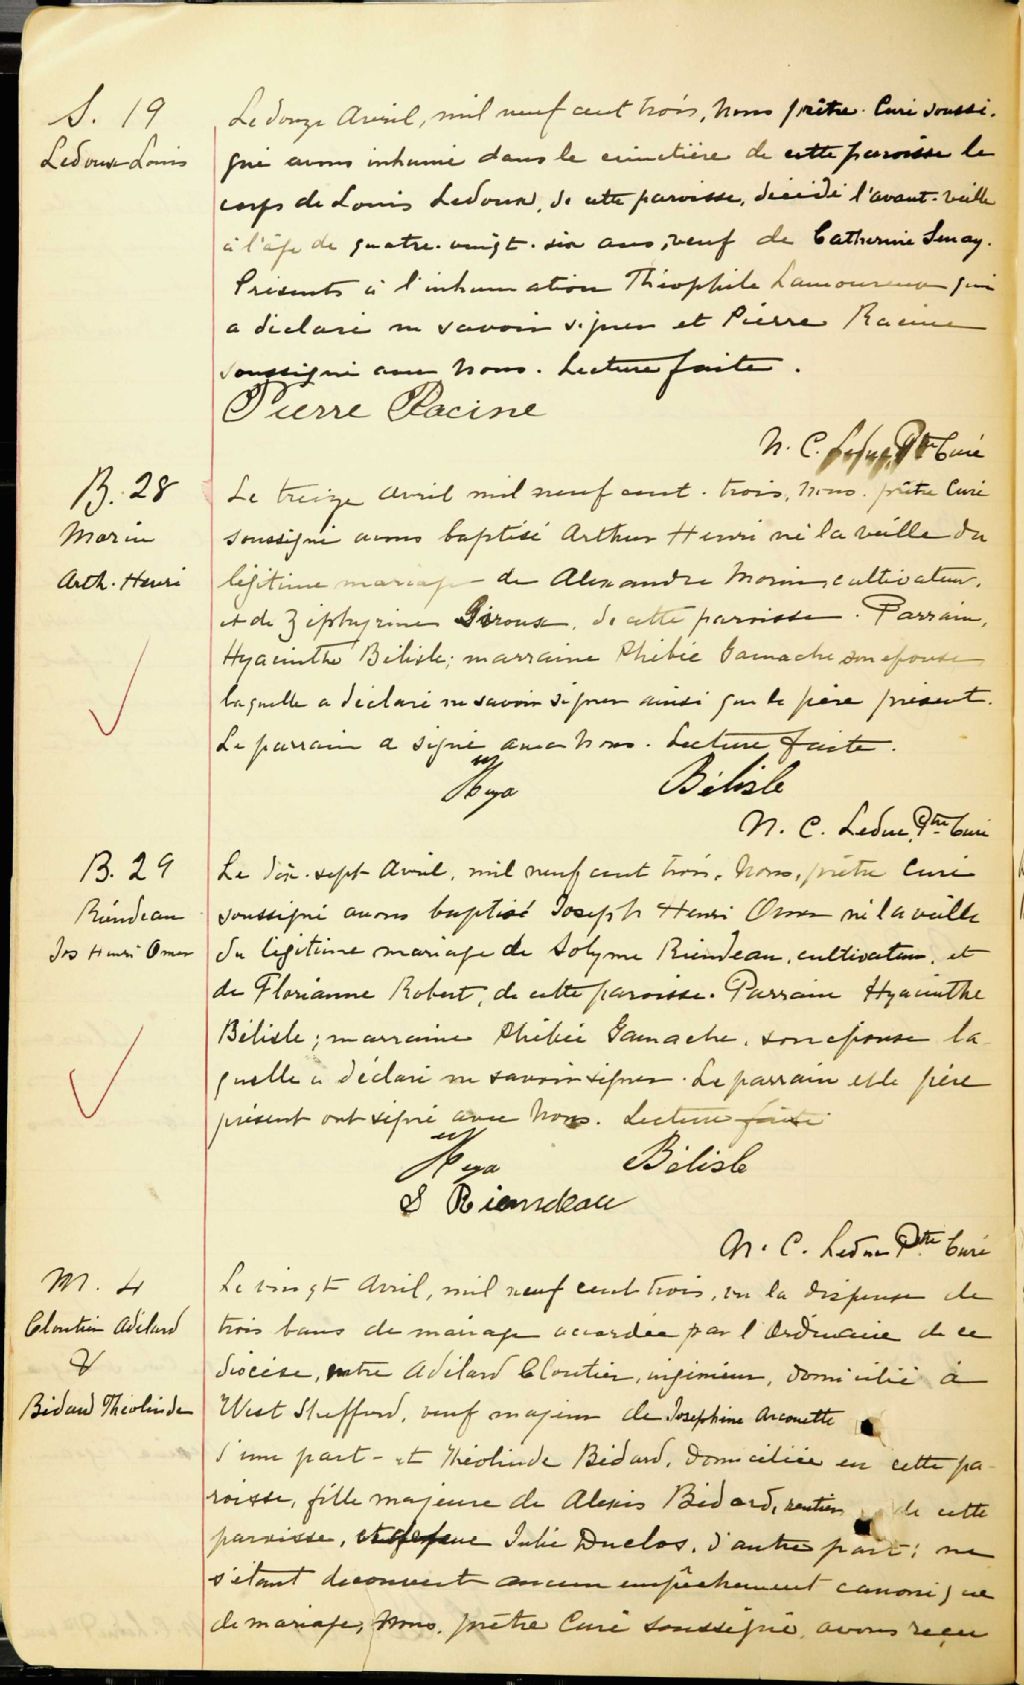 S. 19
Ledoux Louis
Le douze Avril, mil neuf cent trois, Nous prêtre Curé soussi-
gné avons inhumé dans le cimetière de cette paroisse le
corps de Louis Ledoux, de cette paroisse, décédé l'avant-veille
à l'âge de quatre-vingt-six ans, veuf de Catherine Senay.
Présents à l'inhumation Théophile Lamoureux qui
a déclaré ne savoir signer et Pierre Racine
soussigné avec Nous. Lecture faite.
Pierre Racine
N. C. Leduc, Ptre Curé
B. 28
Morin
Arth. Henri
Le treize Avril mil neuf cent trois, Nous, prêtre Curé
soussigné avons baptisé Arthur Henri né la veille du
légitime mariage de Alexandre Morin, cultivateur,
et de Zéphyrine Giroux, de cette paroisse. Parrain,
Hyacinthe Bélisle; marraine Phébée Gamache son épouse
laquelle a déclaré ne savoir signer ainsi que le père présent.
Le parrain a signé avec Nous. Lecture faite.
Hya Bélisle
N. C. Leduc, Ptre Curé
B. 29
Riendeau
Jos Henri Omer
Le dix-sept Avril, mil neuf cent trois, Nous, prêtre Curé
soussigné avons baptisé Joseph Henri Omer né la veille
du légitime mariage de Solyme Riendeau, cultivateur, et
de Florianne Robert, de cette paroisse. Parrain Hyacinthe
Bélisle; marraine Phébée Gamache, son épouse la-
quelle a déclaré ne savoir signer. Le parrain et le père
présent ont signé avec Nous. Lecture faite
Hya Bélisle
S Riendeau
N. C. Leduc Ptre Curé
M. 4
Cloutier Adélard
&
Bédard Théolinde
Le vingt Avril, mil neuf cent trois, vu la dispense de
trois bans de mariage accordée par l'Ordinaire de ce
diocèse, entre Adélard Cloutier, ingénieur, domicilié à
West Shefford, veuf majeur de Josephine Arcouette
d'une part - et Théolinde Bédard, domiciliée en cette pa-
roisse, fille majeure de Alexis Bédard, rentier de cette
paroisse, Julie Duclos, d'autre part; ne
s'étant découvert aucun empêchement canonique
de mariage, Nous, prêtre Curé soussigné, avons reçu